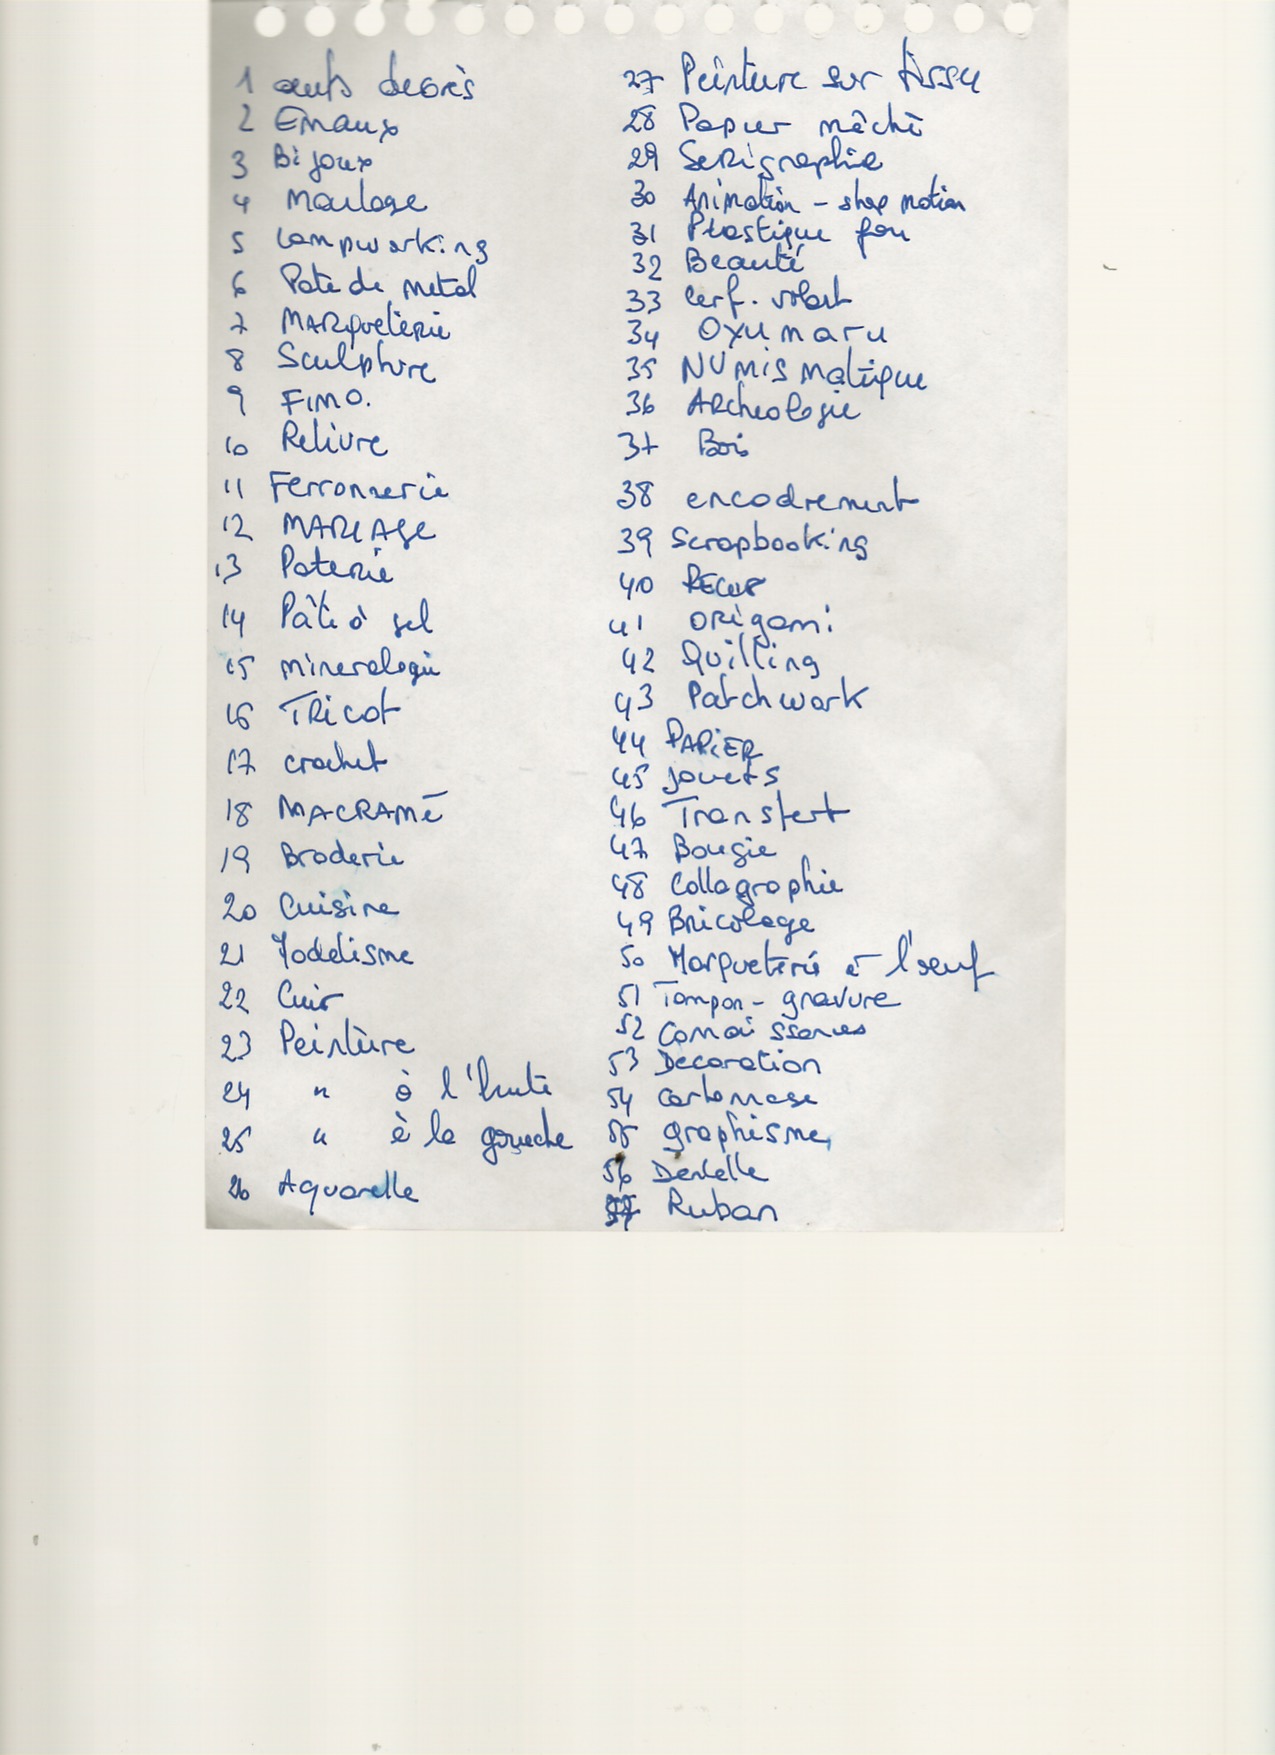 1 oeufs decorès
2 Emaux
3 Bijoux
4 Moulage
5 Lampworking
6 Pate de metal
7 MARqueterie
8 Sculpture
9 FIMO.
10 Reliure
11 Ferronnerie
12 MARIAGE
13 Poterie
14 Pâte à sel
15 mineralogie
16 TRicot
17 crochet
18 MACRAMé
19 Broderie
20 Cuisine
21 Modelisme
22 Cuir
23 Peinture
24 " à l'huile
25 " à la gouache
26 Aquarelle
27 Peinture sur tissu
28 Papier mâché
29 Serigraphie
30 Animation - stop motion
31 Plastique fou
32 Beauté
33 Cerf-volant
34 OYUMARU
35 NUMISmatique
36 ARcheologie
37 Bois
38 encadrement
39 Scrapbooking
40 RECUP
41 ORigami
42 Quilling
43 Patchwork
44 PAPiER
45 jouets
46 Transfert
47 Bougie
48 Collagraphie
49 Bricolage
50 Marqueterie à l'oeuf
51 Tampon - gravure
52 Connaissances
53 Decoration
54 Cartonnage
55 graphisme
56 Dentelle
57 Ruban